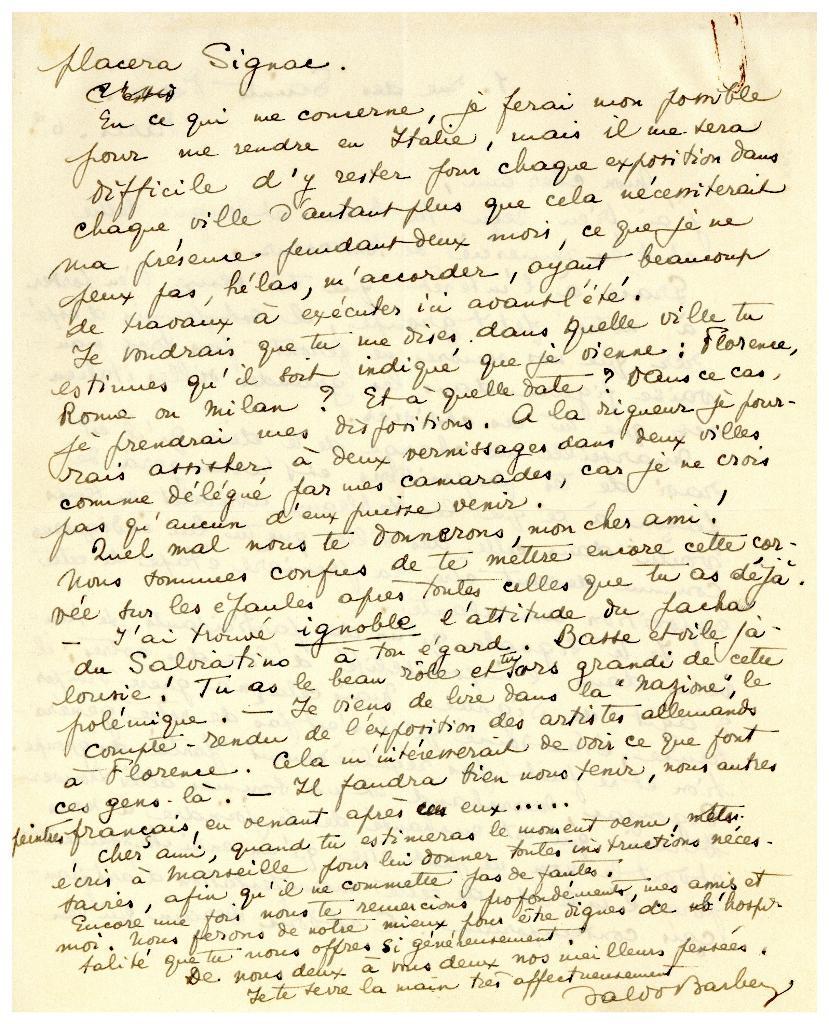 placera Signac.
En ce qui me concerne, je ferai mon possible
pour me rendre en Italie, mais il me sera
difficile d'y rester pour chaque exposition dans
chaque ville d'autant plus que cela nécessiterait
ma présence pendant deux mois, ce que je ne
peux pas, hélas, m'accorder, ayant beaucoup
de travaux à exécuter ici avant l'été.
Je voudrais que tu me dises dans quelle ville tu
estimes qu'il soit indiqué que je vienne : Florence,
Rome ou Milan ? Et à quelle date ? Dans ce cas,
je prendrai mes dispositions. A la rigueur je pour-
rais assister à deux vernissages dans deux villes
comme délégué par mes camarades, car je ne crois
pas qu'aucun d'eux puisse venir.
Quel mal nous te donnerons, mon cher ami !
Nous sommes confus de te mettre encore cette cor-
vée sur les épaules après toutes celles que tu as déjà.
— J'ai trouvé ignoble l'attitude du
du Salviatino à ton égard. Basse et vile ja-
lousie ! Tu as le beau rôle et tu sors grandi de cette
polémique. — Je viens de lire dans la "Nazione", le
compte-rendu de l'exposition des artistes allemands
à Florence. Cela m'intéresserait de voir ce que font
ces gens-là. — Il faudra bien nous tenir, nous autres
peintres français, en venant après eux.....
Cher ami, quand tu estimeras le moment venu,
écris à Marseille pour lui donner toutes instructions néces-
saires, afin qu'il ne commette pas de fautes.
Encore une fois nous te remercions profondément, mes amis et
moi. Nous ferons de notre mieux pour être dignes de l'hospi-
talité que tu nous offres si généreusement.
De nous deux à vous deux nos meilleurs pensées.
Je te serre la main très affectueusement